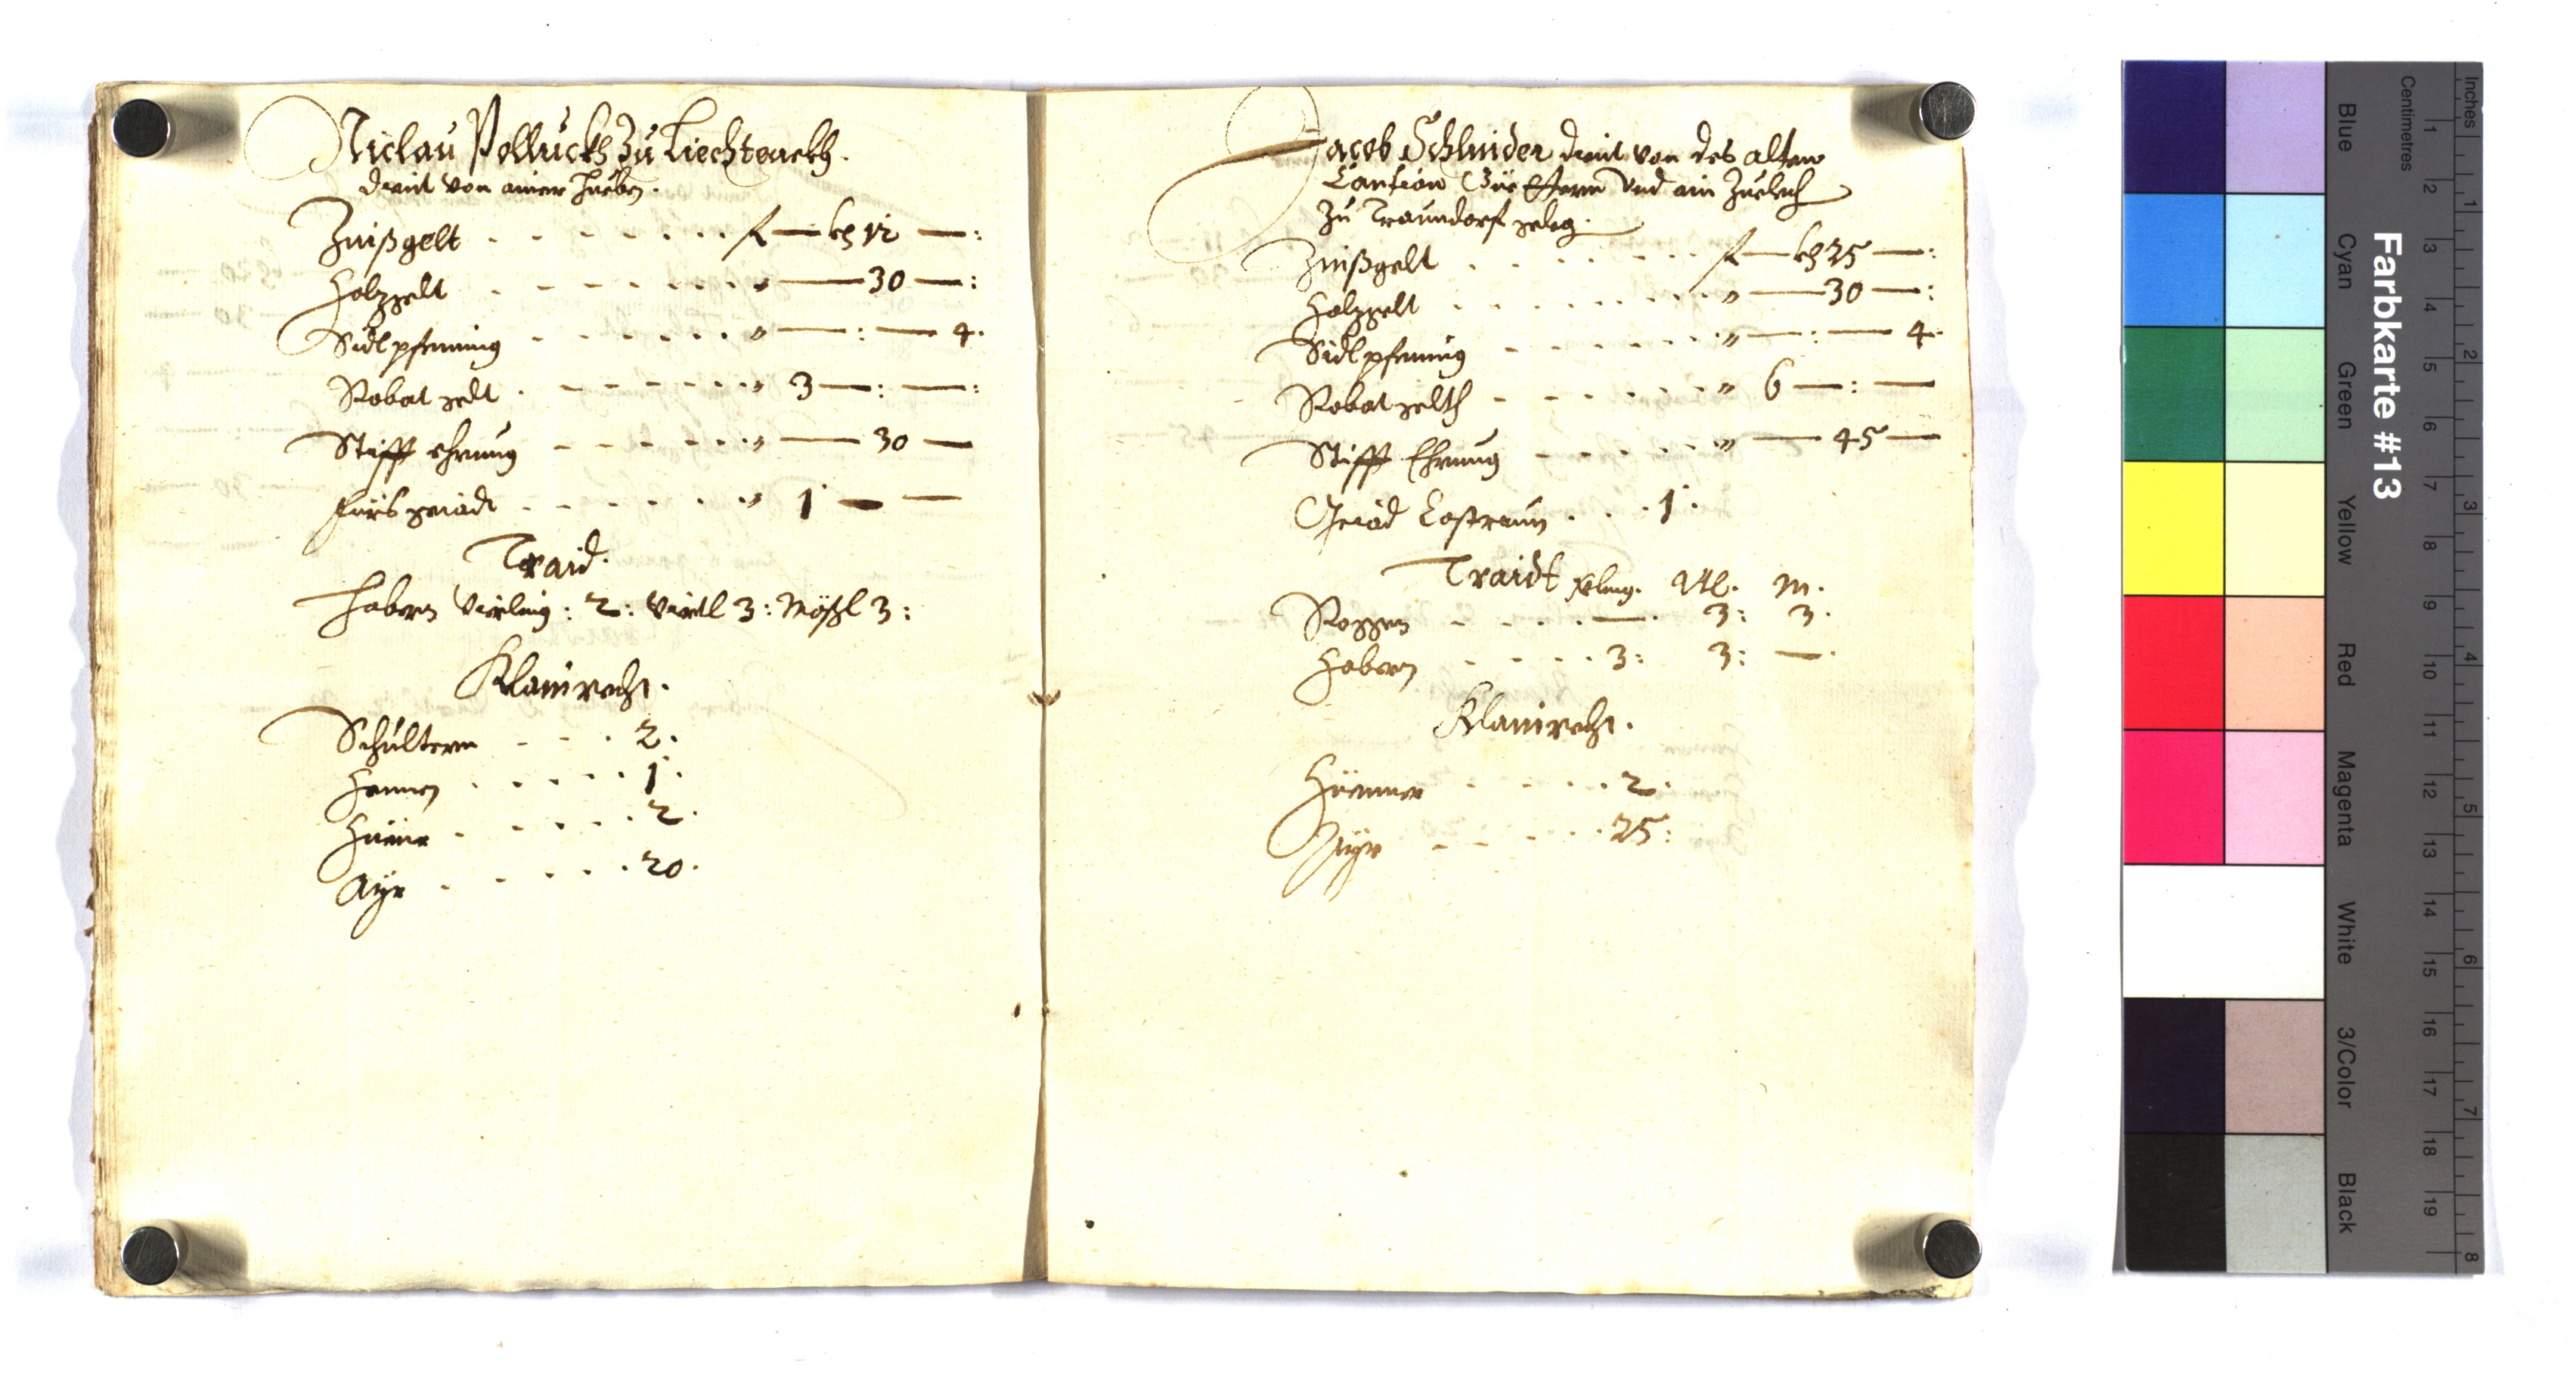 Niclau Polluckh Zu Liechtenekh.
dient von ainer Hueben.
Zinßgelt . - - - - . . . f — kh 12 — :
Holzgelt . - - - - - . . „ — 30 — :
Sidlpfenning - - - - . . . „ — : — 4.
Robat gelt . - - - - - . . „ 3 — : — :
Stifft ehrung - - - - . . . „ — 30 —
fürs geiadt . - - - . . . „ 1 — —
Traid.
Habern Vierling : 2 : Viertl 3 : Mäßl 3 :
Klainrecht.
Schultern - - . 2.
Hannen . - - . . 1.
Hüener . - - . . 2.
Ayr . - - . . 20.
Jacob Schluider dient von des alten
und ein Zuelech
Zu Traundorf geleg.
Zinßgelt . . . - - - . . f — kh 25 — :
Holzgelt . . . . . . . . „ — 30 — :
Sidlpfening - - - - . . . „ — : — 4.
Robat gelth - - - - . . . „ 6 — : —
Stifft Ehrung - - - . . . „ — 45 —
Geiäd Costraun . . . 1.
Traidt Vrlng. Vtl. M.
Roggen - - - . . — . 3 : 3.
Habern - - - . 3 : 3 : — .
Klainrecht.
Hüenner - - - . . 2.
Ayr - - - . . 25 :
Farbkarte #13
Blue
Cyan
Green
Yellow
Red
Magenta
White
3/Color
Black
Centimetres
1 2 3 4 5 6 7 8 9 10 11 12 13 14 15 16 17 18 19
Inches
1 2 3 4 5 6 7 8